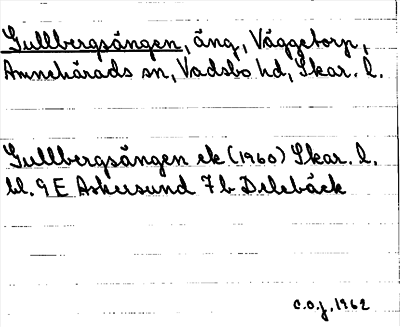 Gullbergsängen, äng, Väggetorp,
Amnehärads sn, Vadsbo hd, Skar. l.
Gullbergsängen ek (1960) Skar. l.
bl. 9 E Askersund 7 b Delebäck
C.O.J. 1962